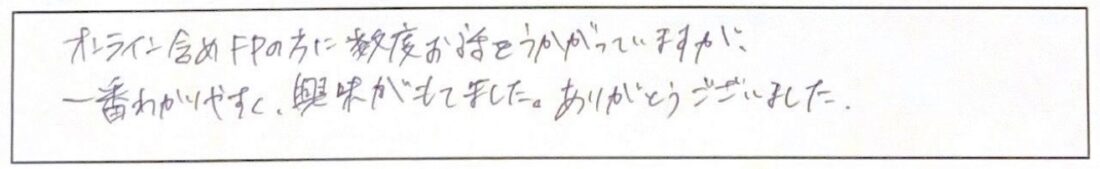 オンライン含めFPの方に数度お話をうかがっていますが、
一番わかりやすく、興味がもてました。ありがとうございました.